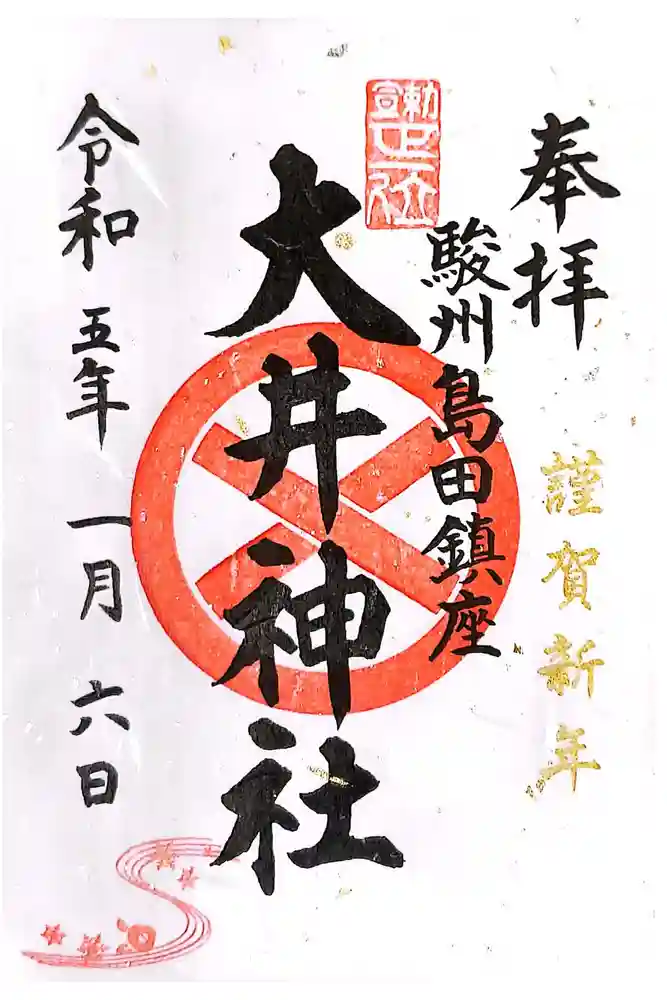 奉拝
謹賀新年
駿州島田鎮座
勅宣正一位
大井神社
令和五年一月六日